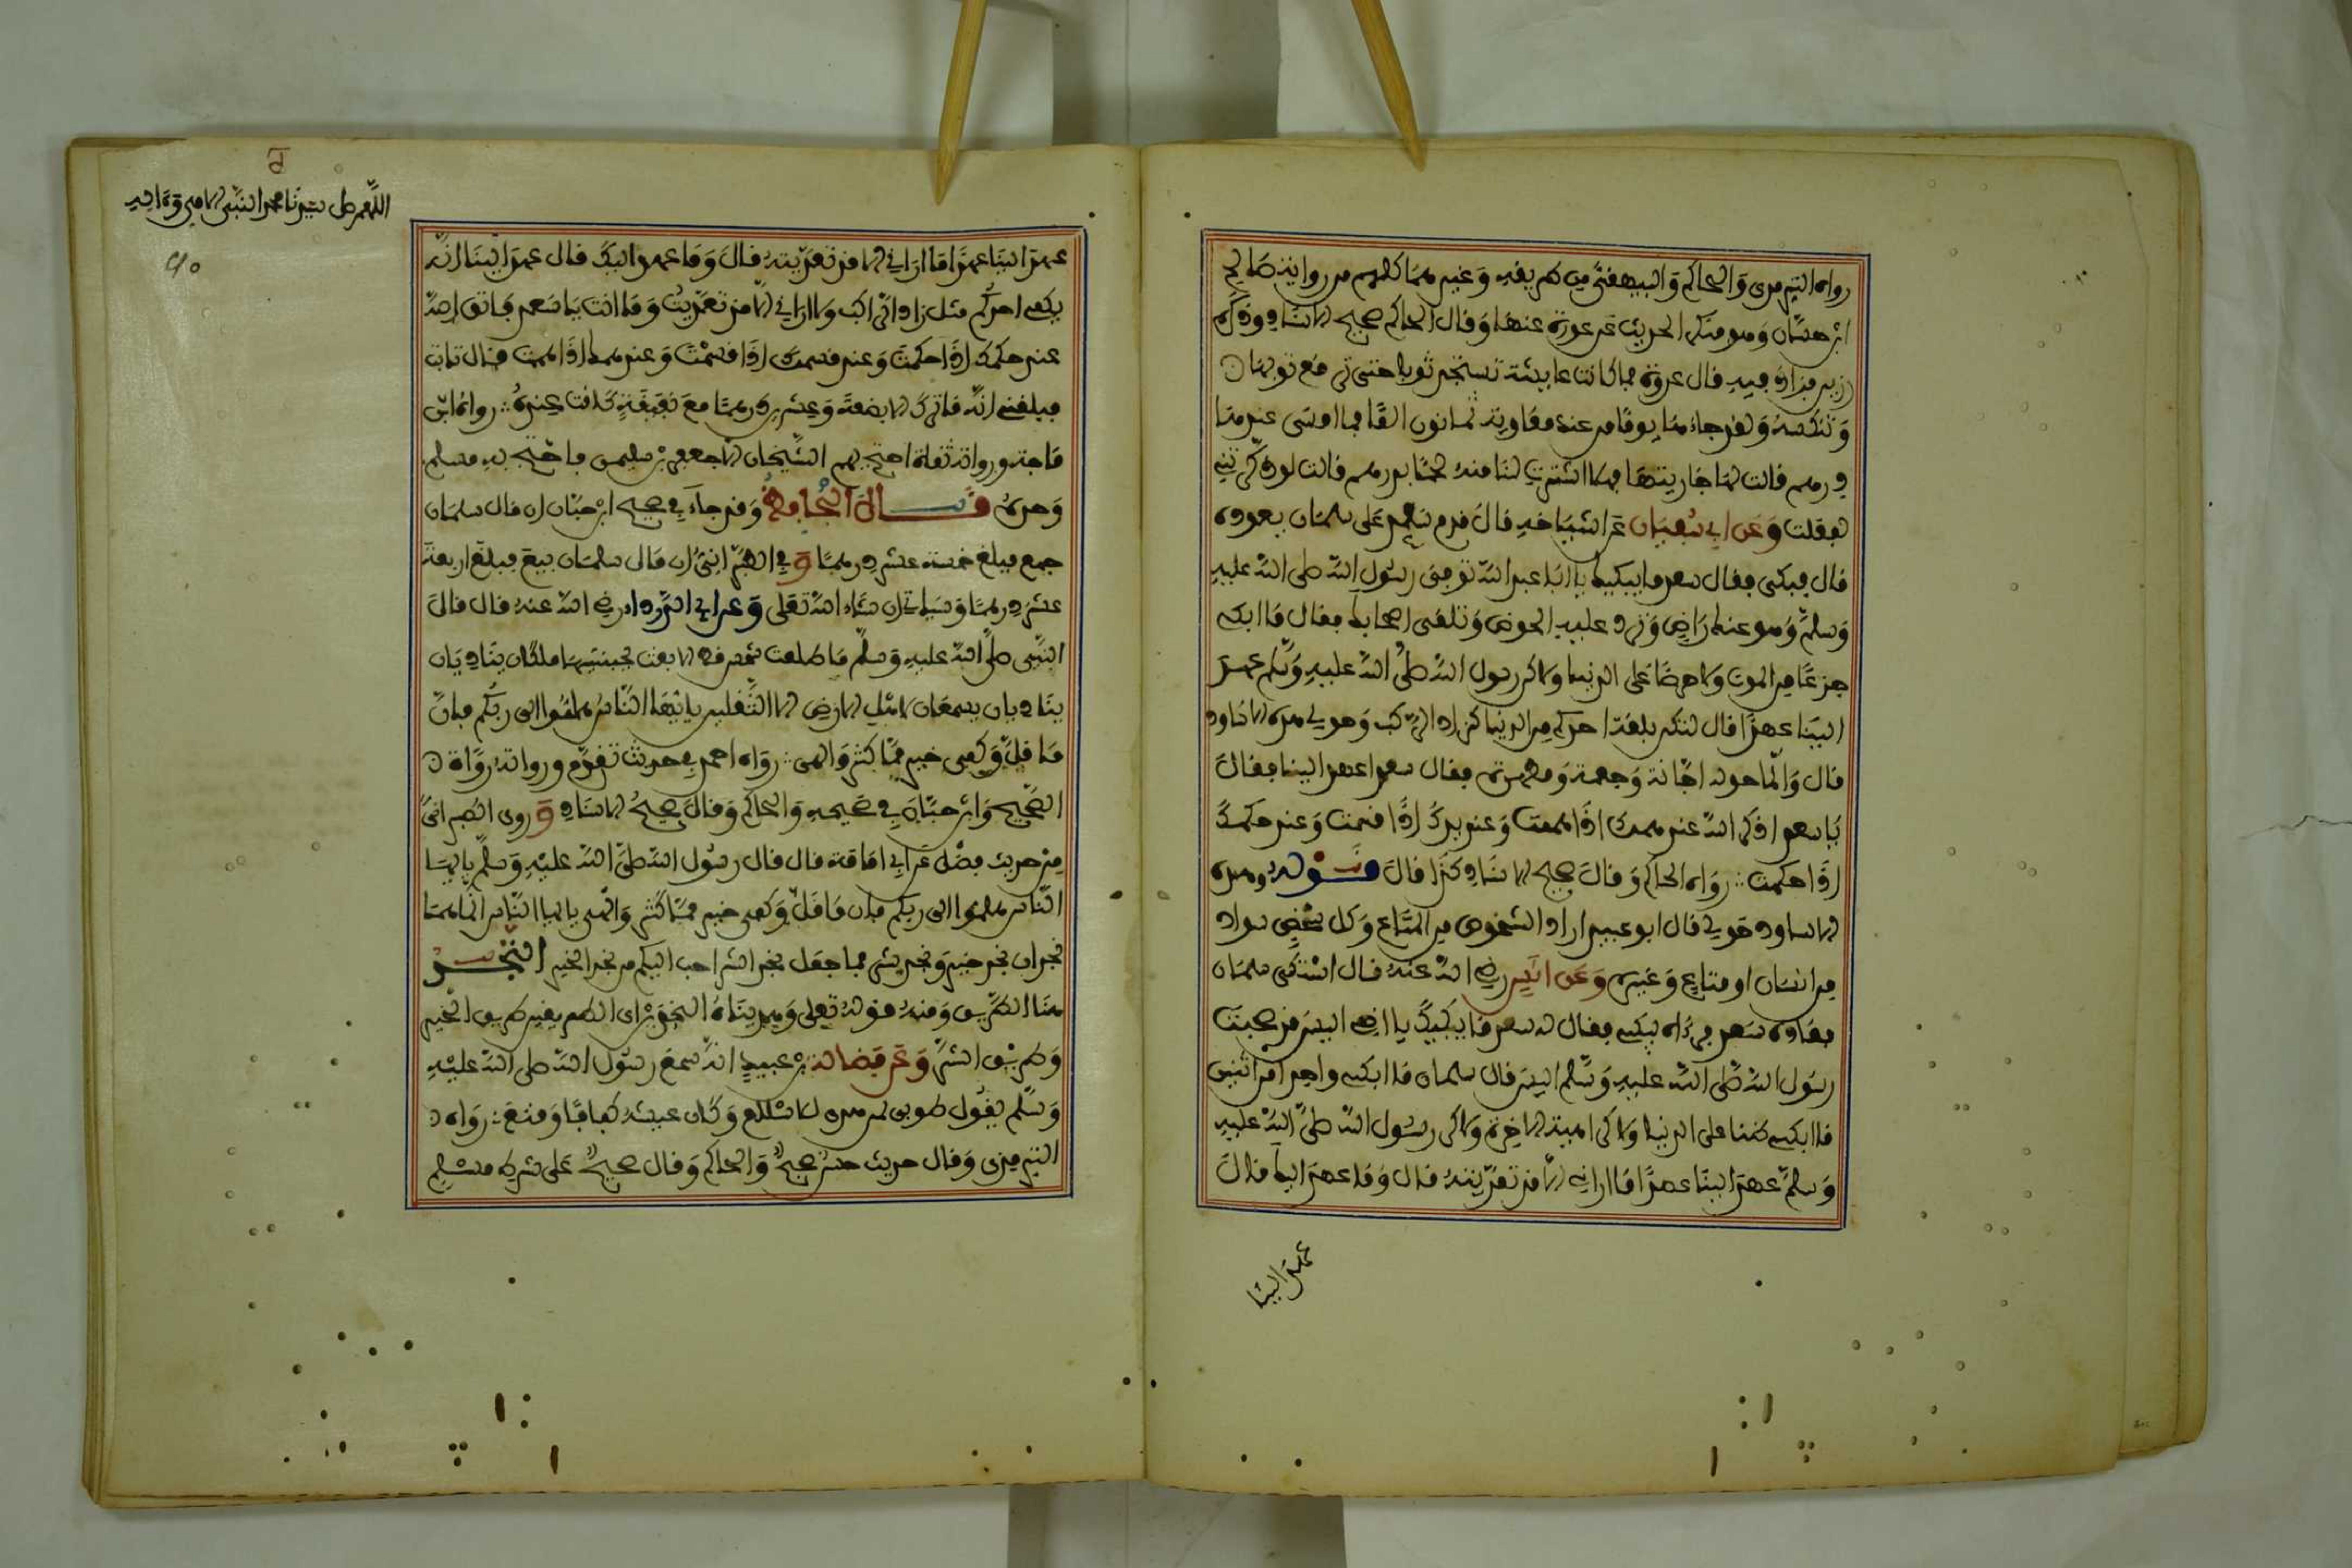 رواه الترمذي والحاكم والبيهقي من طريقه وغير مما كلهم من رواية صالح
ابن حسان وهو منكر الحديث عن عروة عنها وقال الحاكم صحيح الاسناد وذكره
رزين فزاد فيه قال عروة فما كانت عايشة تستجد ثوبا حتى ترقع ثوبها
وتنكسه ولقد جاءها يوما من عند معاوية ثمانون الفا فما امسى عندها
درهم قالت لها جاريتها فهلا اشتريت لنا منه لحما بدرهم قالت لو ذكرتني
لفعلت وعن ابي سفيان عن اشياخه قال قدم سعد على سلمان يعوده
قال فبكى فقال سعد ما يبكيك يا ابا عبد الله توفي رسول الله صلى الله عليه
وسلم وهو عنك راض وترد عليه الحوض وتلقى اصحابك فقال ما ابكي
جزعا من الموت ولا حرصا على الدنيا ولاكن رسول الله صلى الله عليه وسلم عهد
الينا عهدا قال لتكن بلغة احدكم من الدنيا كزاد الراكب وحولي هذه الاساود
قال وانما حوله اجانة وجفنة ومطهرة فقال سعد اعهد الينا فقال
يا سعد اذكر الله عند همك اذا هممت وعند يدك اذا قسمت وعند حكمك
اذا حكمت رواه الحاكم وقال صحيح الاسناد كذا قال قوله وهذه
الاساود حولي قال ابو عبيد اراد الشخوص من المتاع وكل شخص سواد
من انسان او متاع وغيره وعن انس رضي الله عنه قال اشتكى سلمان
فعاده سعد فرءاه يبكي فقال له سعد ما يبكيك يا اخي اليس قد صحبت
رسول الله صلى الله عليه وسلم اليس قال سلمان ما ابكي واحدة من اثنتين
ما ابكي ضنا على الدنيا ولا كراهية الاخرة ولاكن رسول الله صلى الله عليه
وسلم عهد الينا عهدا ما اراني الا قد تعديته قال وما عهد اليك قال
عهد الينا
اللهم صل سيدنا محمد النبي الامي وءاله
عهد الينا عهدا ما اراني الا قد تعديته قال وما عهد اليك قال عهد الينا انه
يكفي احدكم مثل زاد الراكب ولا اراني الا قد تعديت وما انت يا سعد فاتق الله
عند حكمك اذا حكمت وعند قسمك اذا قسمت وعند همك اذا هممت قال ثابت
فبلغني انه ما ترك الا بضعة وعشرين درهما مع نفيقة كانت عنده رواه ابن
ماجه ورواته ثقات احتج بهم الشيخان الا جعفر بن سليمن فاحتج به مسلم
وحده قال الحافظ وقد جاء في صحيح ابن حبان ان مال سلمان
جمع فبلغ خمسة عشر درهما وفي الطبراني ان مال سلمان بيع فبلغ اربعة
عشر درهما وسياتي ان شاء الله تعلى وعن ابي الدرداء رضي الله عنه قال قال
النبي صلى الله عليه وسلم ما طلعت شمس قط الا بعث بجنبتيها ملكان يناديان
يناديان يسمعان اهل الارض الا الثقلين يا ايها الناس هلموا الى ربكم فان
ما قل وكفى خير مما كثر والهى رواه احمد في حديث تقدم ورواته رواة
الصحيح وابن حبان في صحيحه والحاكم وقال صحيح الاسناد وروى الطبراني
من حديث فضل عن ابي امامة قال قال رسول الله صلى الله عليه وسلم يا ايها
الناس هلموا الى ربكم فان ما قل وكفى خير مما كثر والهى يا ايها الناس انما هما
نجدان نجد خير ونجد شر فما جعل نجد الشر احب اليكم من نجد الخير النجد
هنا الطريق ومنه قوله تعلى وهديناه النجدين اي الطريقين طريق الخير
وطريق الشر وعن فضالة بن عبيد انه سمع رسول الله صلى الله عليه
وسلم يقول طوبى لمن هدي للاسلام وكان عيشه كفافا وقنع رواه
الترمذي وقال حديث حسن صحيح والحاكم وقال صحيح على شرط مسلم